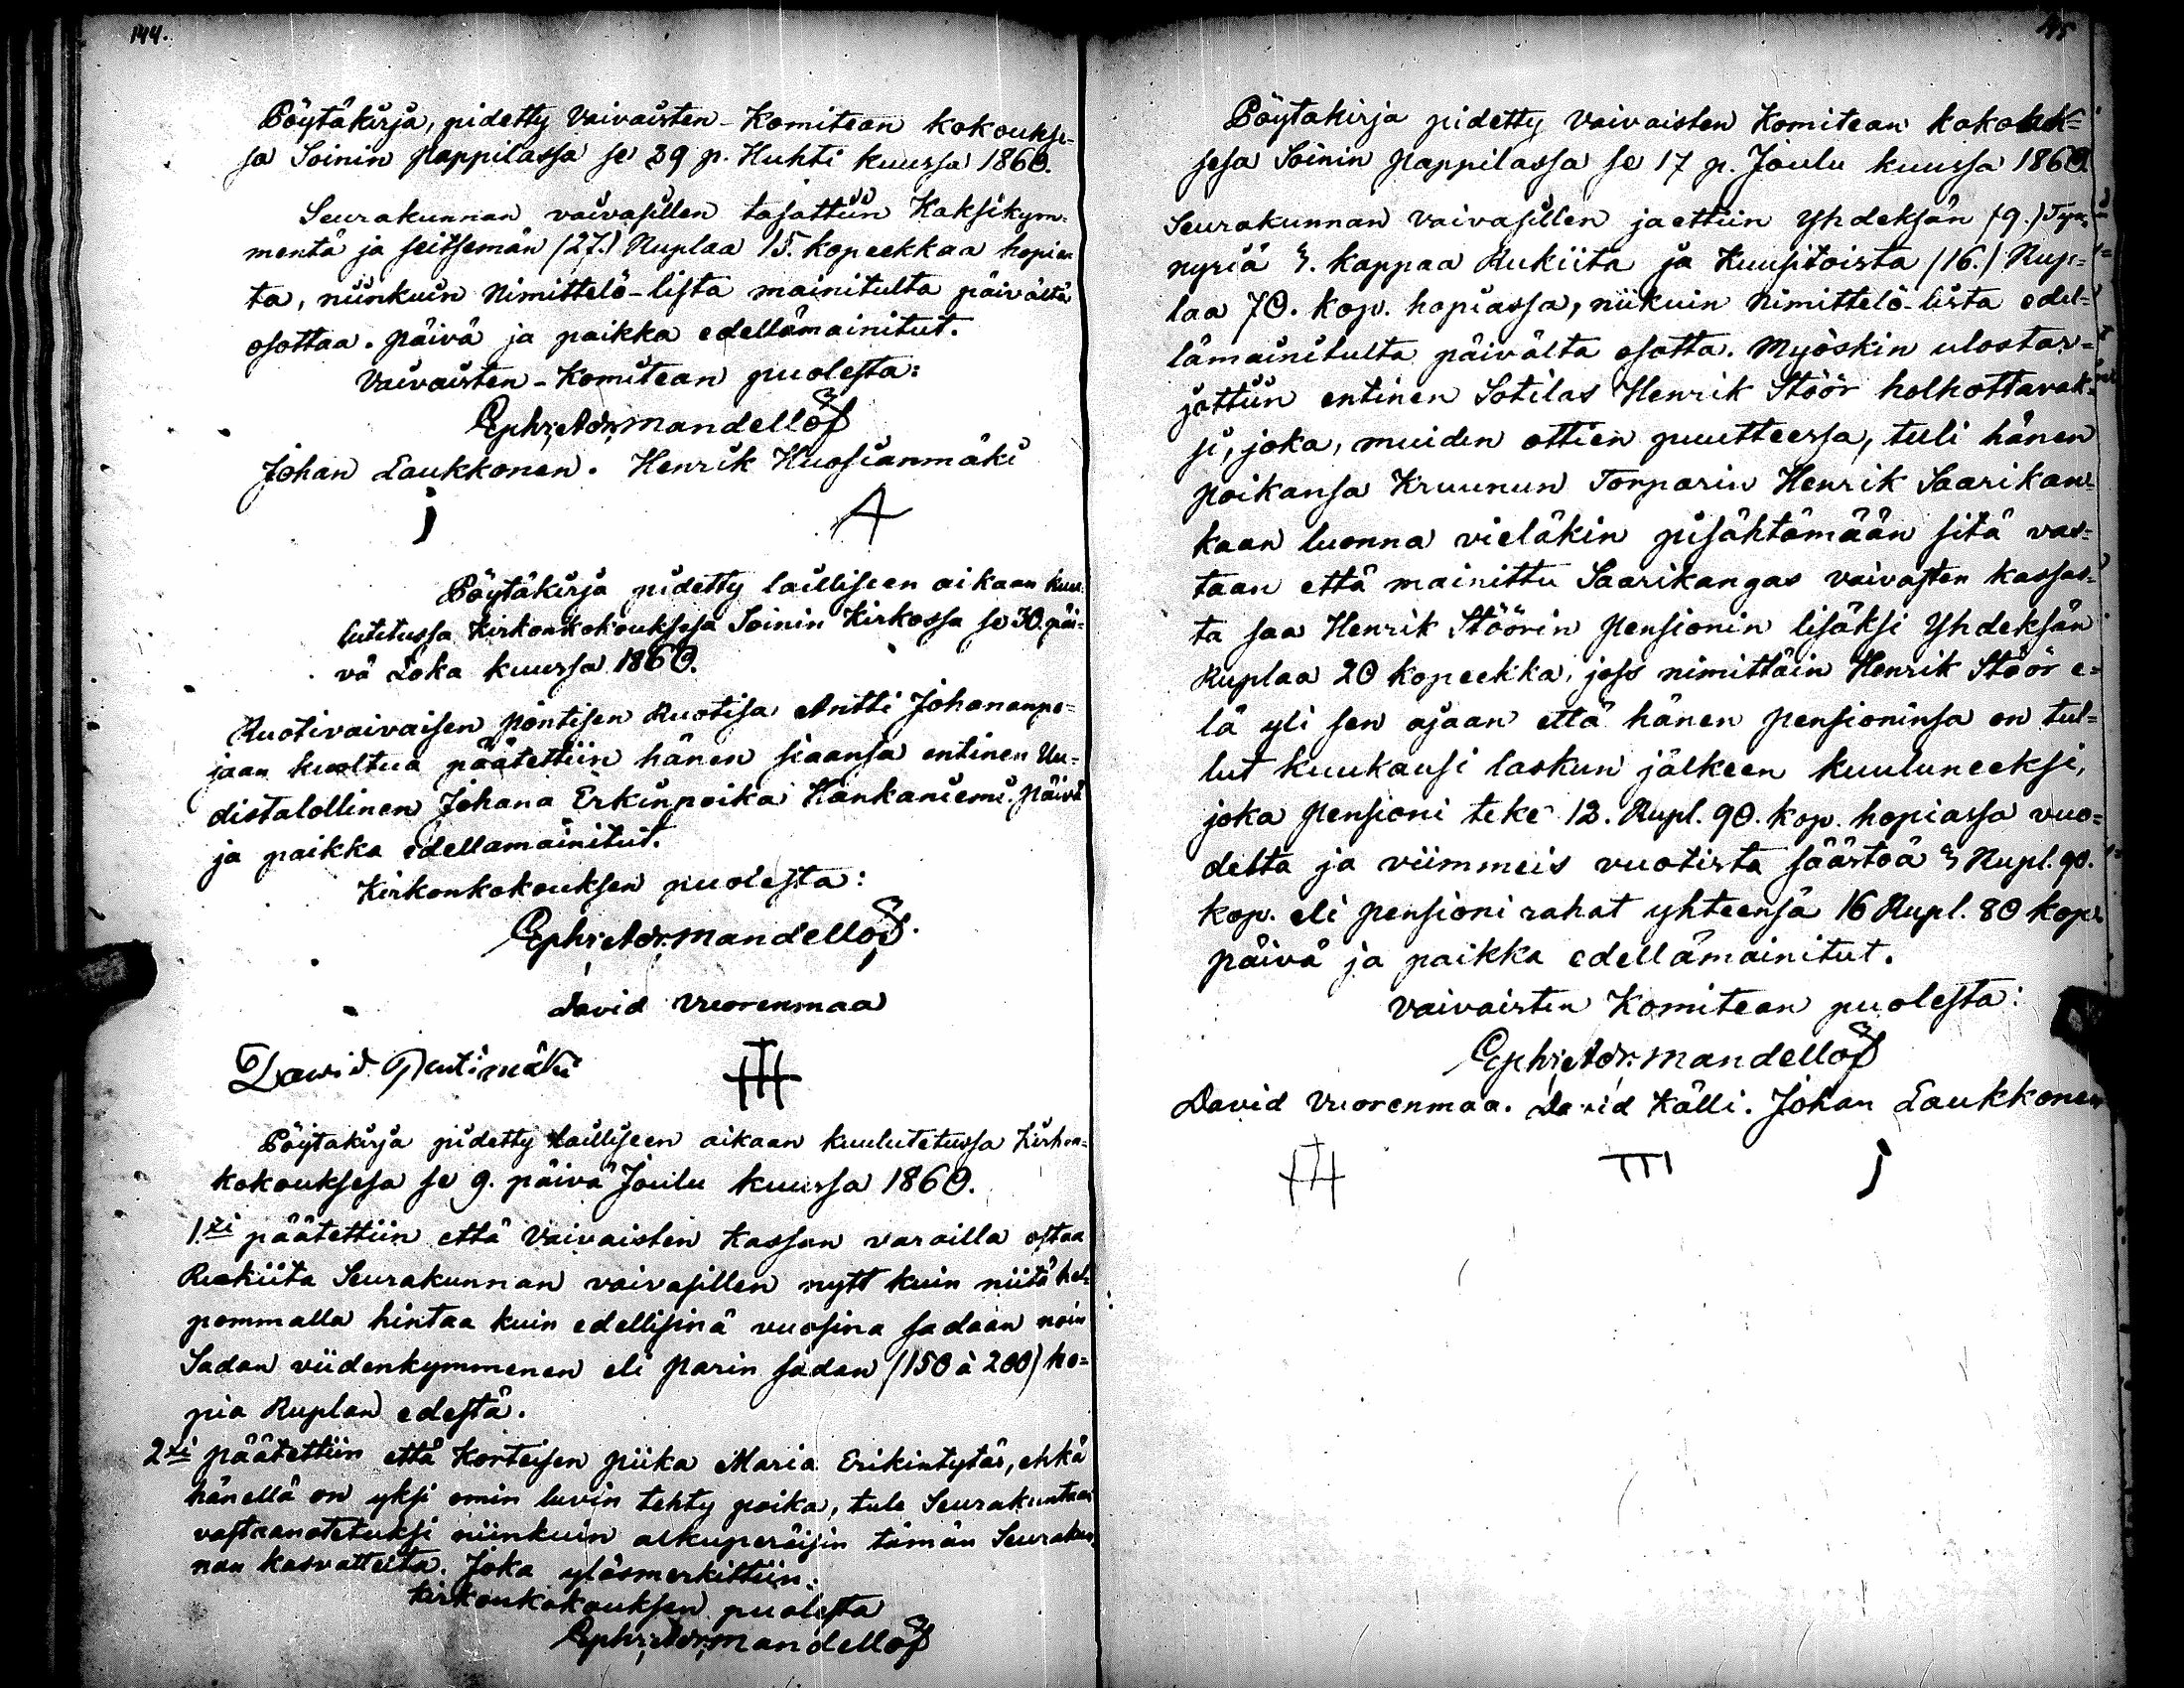 144.
Pöytäkirja, pidetty Vaivaisten-Komitean kokoukse-
sa Soinin pappilassa se 29 p. Huhti kuussa 1860.
Seurakunnan vaivasillen tasattiin Kaksikym-
mentä ja seitsemän (27.) Ruplaa 15. kopeekkaa hopias-
ta, niinkuin Nimittelö-lista mainitulta päivältä
osottaa. Päivä ja paikka edellämainitut.
Vaivaisten-Komitean puolesta:
Ephr. Adr. Mandellöf
Johan Laukkonen. Henrik Huosianmäki
Pöytäkirja pidetty lailliseen aikaan kuu-
lutetussa Kirkonkokouksesa Soinin Kirkossa se 30. päi-
vä Loka kuussa 1860.
Ruotivaivaisen Pöntisen Ruotisa Antti Johananpo-
jaan kuoltua päätettiin hänen siaansa entinen Uu-
distalollinen Johana Erkinpoika Hankaniemi. Päivä
ja paikka edellamainitut.
Kirkonkokouksen puolesta:
Ephr. Adr. Mandellöf.
David Vuorenmaa
Dawid Pentimäki
Pöytakirja pidetty lailliseen aikaan kuulutetussa Kirkon-
kokouksesa se 9. päivä Joulu kuussa 1860.
1.xi päätettiin että Vaivaisten Kassan varailla ostaa
Rukiita Seurakunnan vaivasillen nytt kuin niitä hel-
pommalla hintaa kuin edellisinä vuosina sadaan noin
Sadan viidenkymmenen eli parin sadan (150 à 200) ho-
pia Ruplan edestä.
2xi päätettiin että Korteisen piika Maria Erikintytär, ehkä
hänellä on yksi omin luvin tehty poika, tule Seurakuntaan
vastaanotetuksi niinkuin alkuperäisin tämän Seurakun-
nan kasvatteita. Joka ylösmerkittiin.
Kirkonkokouksen puolesta
Ephr. Adr. Mandellöf
145
Pöytakirja pidetty Vaivaisten Komitean kokouk-
sesa Soinin pappilassa se 17 p. Joulu kuussa 1860.
Seurakunnan vaivasillen jaettiin Yhdeksän (9.) Tyn-
nyriä 3. kappaa Rukiita ja Kuusitoista (16.) Rup-
laa 70. kop. hopiassa, niikuin Nimittelö-lista edel-
lämainitulta päivälta osotta. Myöskin ulostar-
jottiin entinen Sotilas Henrik Stöör holhottavak-
si, joka, muiden ottien puutteessa, tuli hänen
poikansa Kruunun Torparin Henrik Saarikan-
kaan luonna vieläkin pisähtämään sitä vas-
taan että mainittu Saarikangas vaivasten kassas-
ta saa Henrik Stöörin Pensionin lisäksi Yhdeksän
Ruplaa 20 kopeekka, joss nimittäin Henrik Stöör e-
lä yli sen ajaan että hänen pensioninsa on tul-
lut kuukausi laskun jälkeen kuuluneeksi,
joka Pensioni teke 12. Rupl. 90. kop. hopiassa vuo-
delta ja viimmeis vuotista säästöä 3 Rupl. 90.
kop. eli pensioni rahat yhteensä 16 Rupl. 80 kop.
päivä ja paikka edellämainitut.
Vaivaisten Komitean puolesta:
Ephr. Adr. Mandellöf
David Vuorenmaa. David Källi. Johan Laukkonen